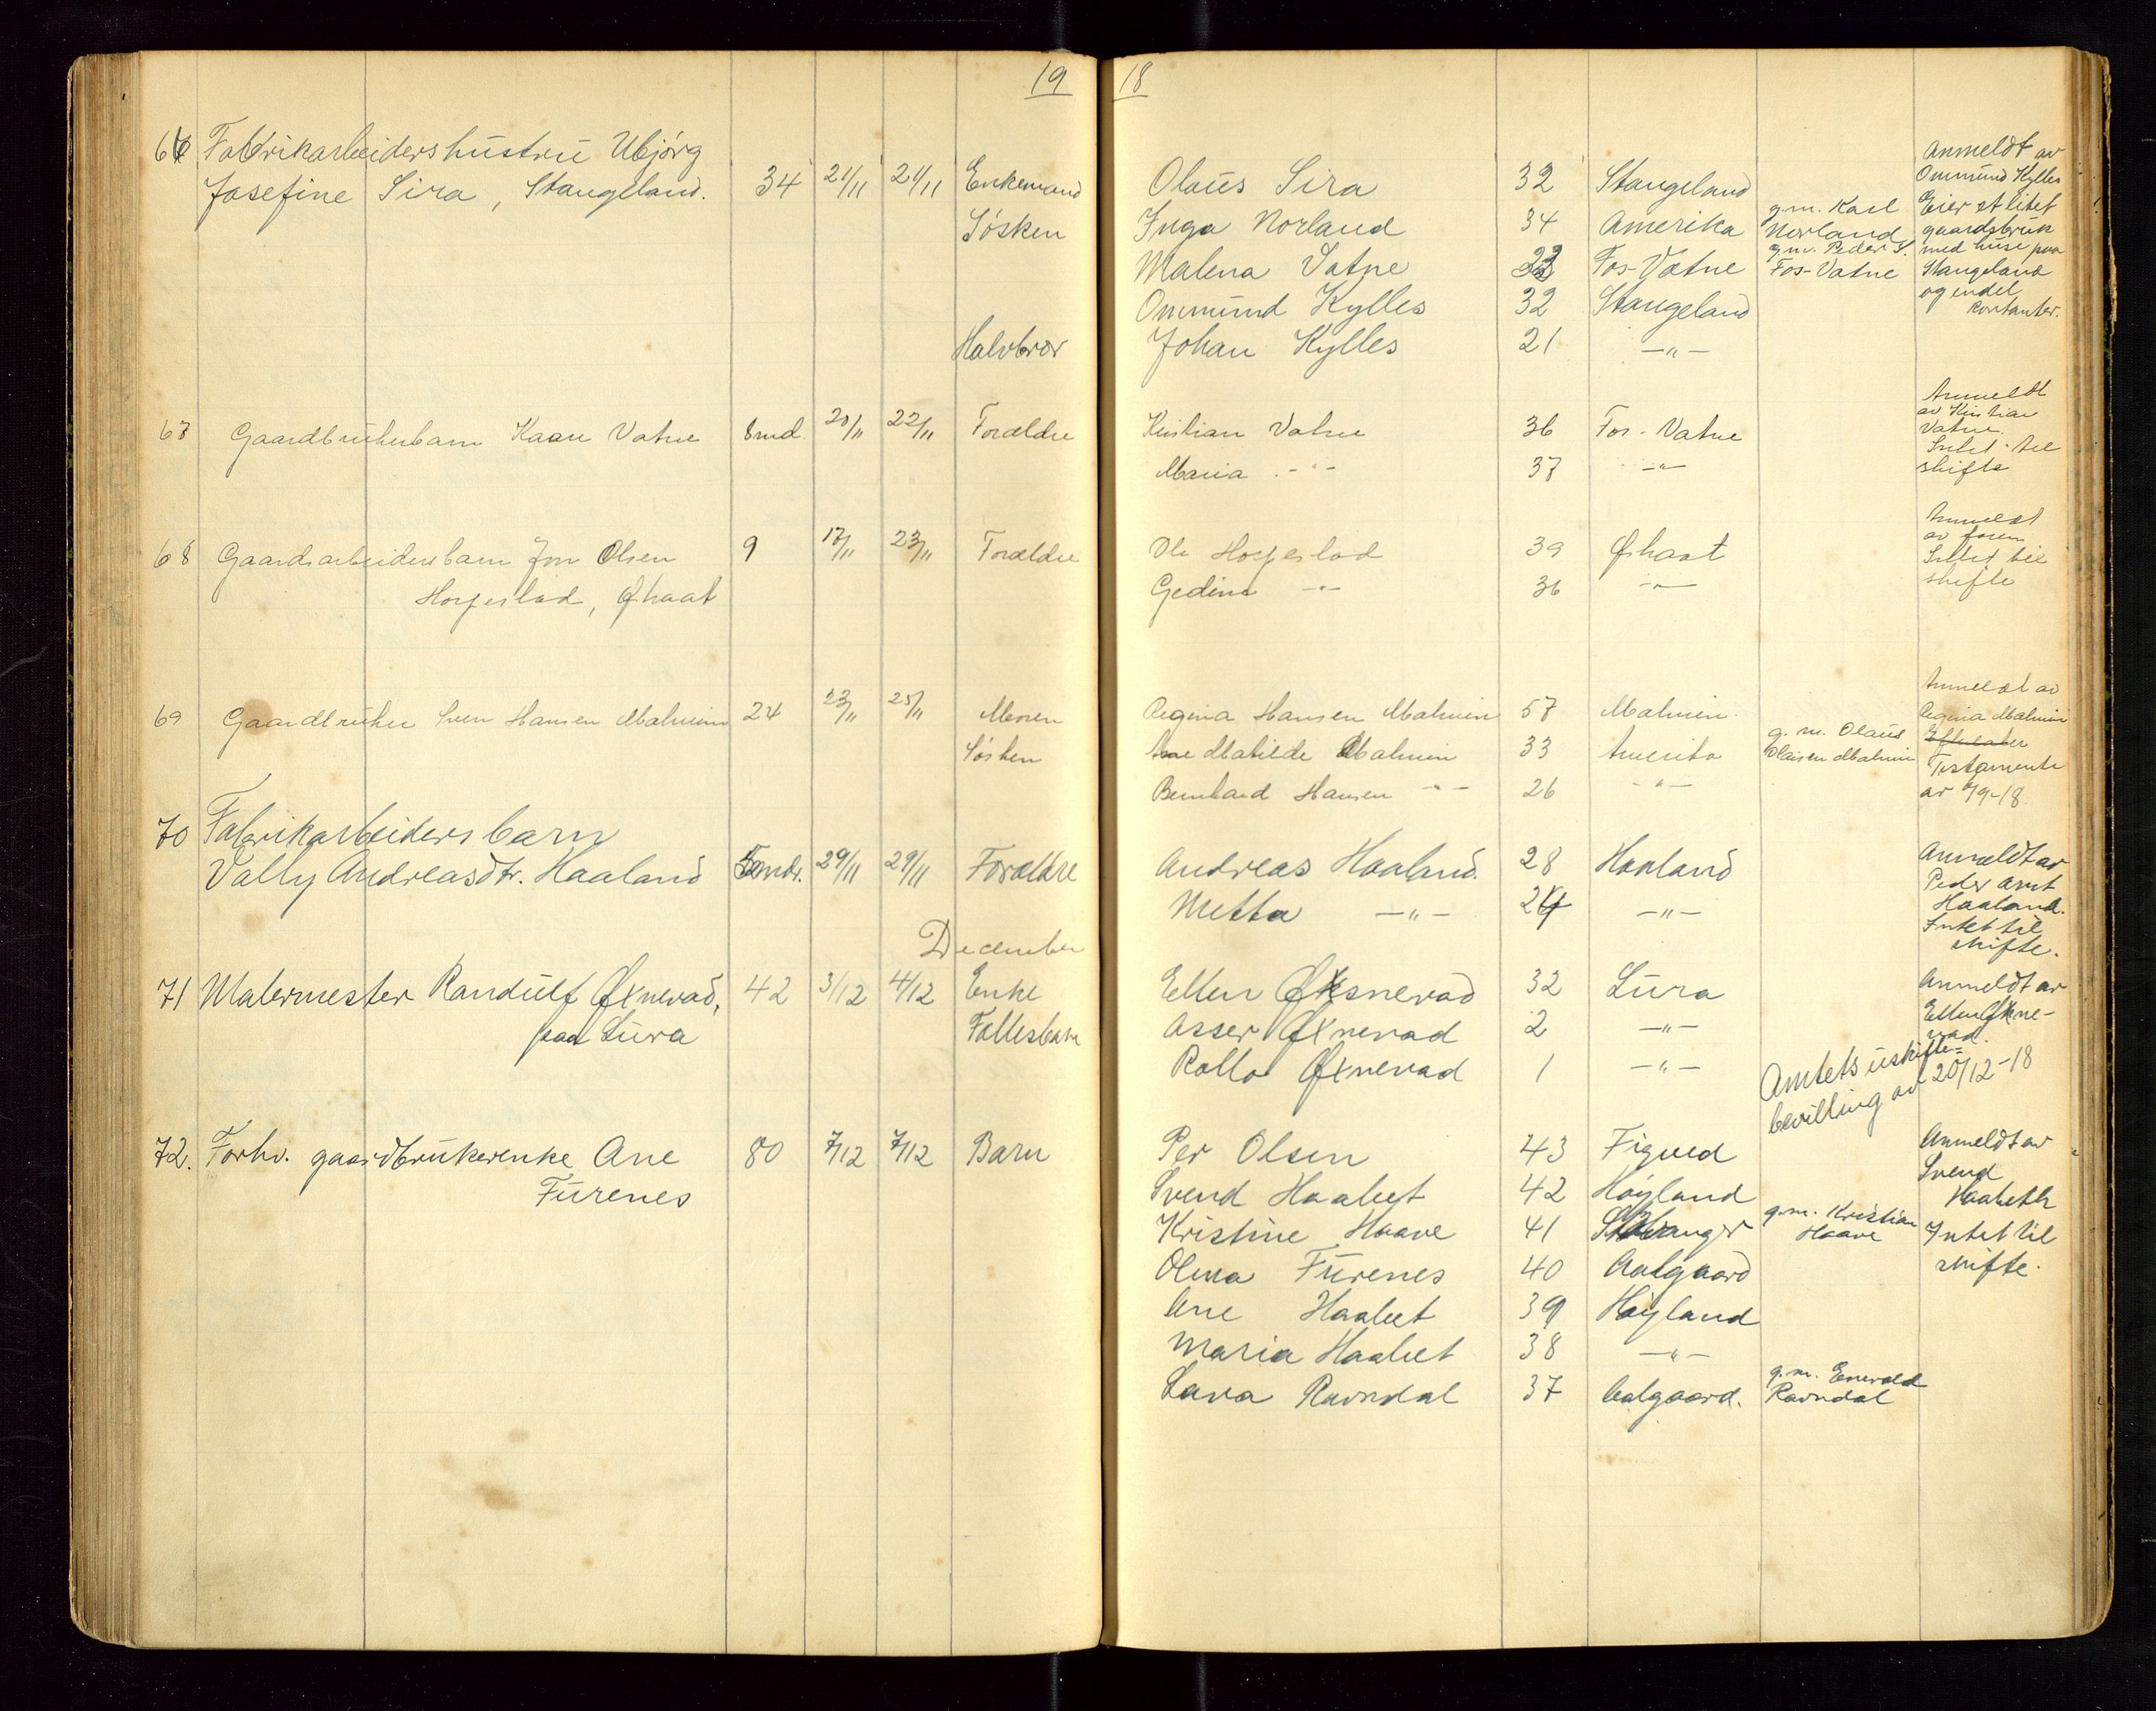 19 18
66 Fabrikarbeidershustru Ubjørg
Josefine Sira, Stangeland. 34 21/11 21/11 Enkemand Olaus Sira 32 Stangeland
Anmeldt av
Ommund Kylles
Eier et litet
gaardsbruk
med huse paa
Stangeland
og endel
kontanter.
Søsken Inga Norland 34 Amerika g.m. Karl Norland
Malena Vatne 33 Fos-Vatne g.m. Peder S. Fos-Vatne
Ommund Kylles 32 Stangeland
Halvbror Johan Kylles 21 —"—
67 Gaardbrukerbarn Kaare Vatne 8 md. 20/11 22/11 Forældre Kristian Vatne 36 Fos-Vatne
Maria —"— 37 —"—
Anmeldt
av Kristian
Vatne.
Intet til
skifte
68 Gaardsarbeidersbarn Jon Olsen 9 17/11 23/11 Forældre Ole 39
Gedina —"— 36 —"—
Anmeldt
av faren
Intet til
skifte
69 Gaardbruker Sven Hansen Malmin 24 23/11 25/11 Moren Regina Hansen Malmin 57 Malmin.
Søsken Ane Matilde Malmin 33 Amerika g. m. Olaus Olaisen Malmin
Bernhard Hansen —"— 26 —"—
Anmeldt av
Regina Malmin
Efterlater
Testamente
av 9-18
70 Fabrikarbeidersbarn
Vally Andreasdtr. Haaland 5 mdr. 29/11 29/11 Forældre Andreas Haaland. 28 Haaland
Metta —"— 24 —"—
Anmeldt av
Peder Arnt
Haaland.
Intet til
skifte.
December
71 Malermester Randulf Øxnevad, 42 3/12 4/12 Enke Ellen Øksnevad 32 Lura
paa Lura Fællesbarn Asser Øxnevad 2 —"—
Rollo Øxnevad 1 —"—
Anmeldt av
Ellen Øxne-
vad.
Amtets uskifte-
bevilling av 20/12-18
72. Forhv. gaardbrukerenke Ane 80 7/12 7/12 Barn Per Olsen 43 Figved
Furenes Svend Haabet 42 Høyland
Kristine Haave 41 Stavanger g.m. Kristian Haave
Olena Furenes 40 Aalgaard
Ane Haabet 39 Høyland
Maria Haabet 38 —"—
Lava Ravndal 37 Aalgaard. g.m. Enevald Ravndal
Anmeldt av
Svend
Haabeth
Intet til
skifte.